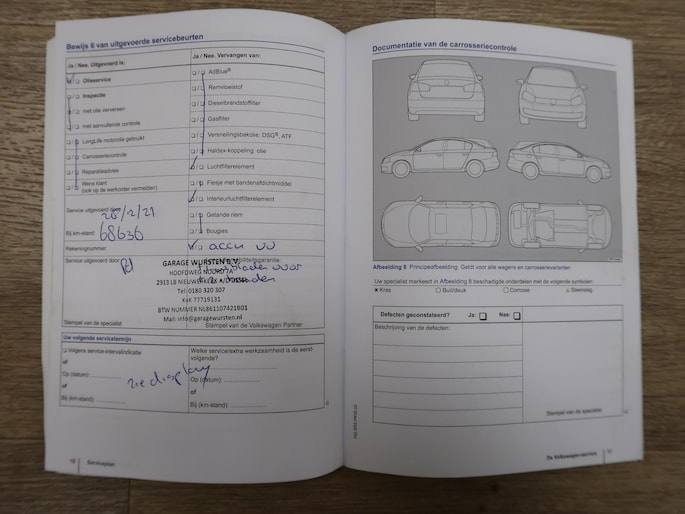 Bewijs 6 van uitgevoerde servicebeurten
Ja / Nee. Uitgevoerd is:
Olieservice
Inspectie
met olie verversen
met aanvullende controle
LongLife motorolie gebruikt
Carrosseriecontrole
Reparatieadvies
Wens klant
(ook op de werkorder vermelden)
Ja / Nee. Vervangen van:
AdBlue®
Remvloeistof
Dieselbrandstoffilter
Gasfilter
Versnellingsbakolie: DSG®, ATF
Haldex-koppeling: olie
Luchtfilterelement
Flesje met bandenafdichtmiddel
Interieurluchtfilterelement
Getande riem
Bougies
accu
Service uitgevoerd door
Bij km-stand: 68636
Rekeningnummer:
Service uitgevoerd door:
GARAGE WURSTEN B.V.
HOOFDWEG NOORD
2913 LB NIEUWERKERK A/D IJSSEL
Tel: 0180 320 307
KvK 77719131
BTW NUMMER NL861107421B01
Mail: info@garagewursten.nl
Stempel van de specialist
Stempel van de Volkswagen Partner
Uw volgende servicetermijn
Volgens service-intervalindicatie
of
Op (datum):
of
Bij (km-stand):
zie display
Welke service/extra werkzaamheid is de eerst-
volgende?
Op (datum):
of
Bij (km-stand):
Serviceplan
Documentatie van de carrosseriecontrole
Afbeelding 8 Principeafbeelding: Geldt voor alle wagens en carrosserievarianten
Uw specialist markeert in Afbeelding 8 beschadigde onderdelen met de volgende symbolen:
Kras Buil/deuk Corrosie Steenslag
Defecten geconstateerd? Ja: Nee:
Beschrijving van de defecten:
Stempel van de specialist